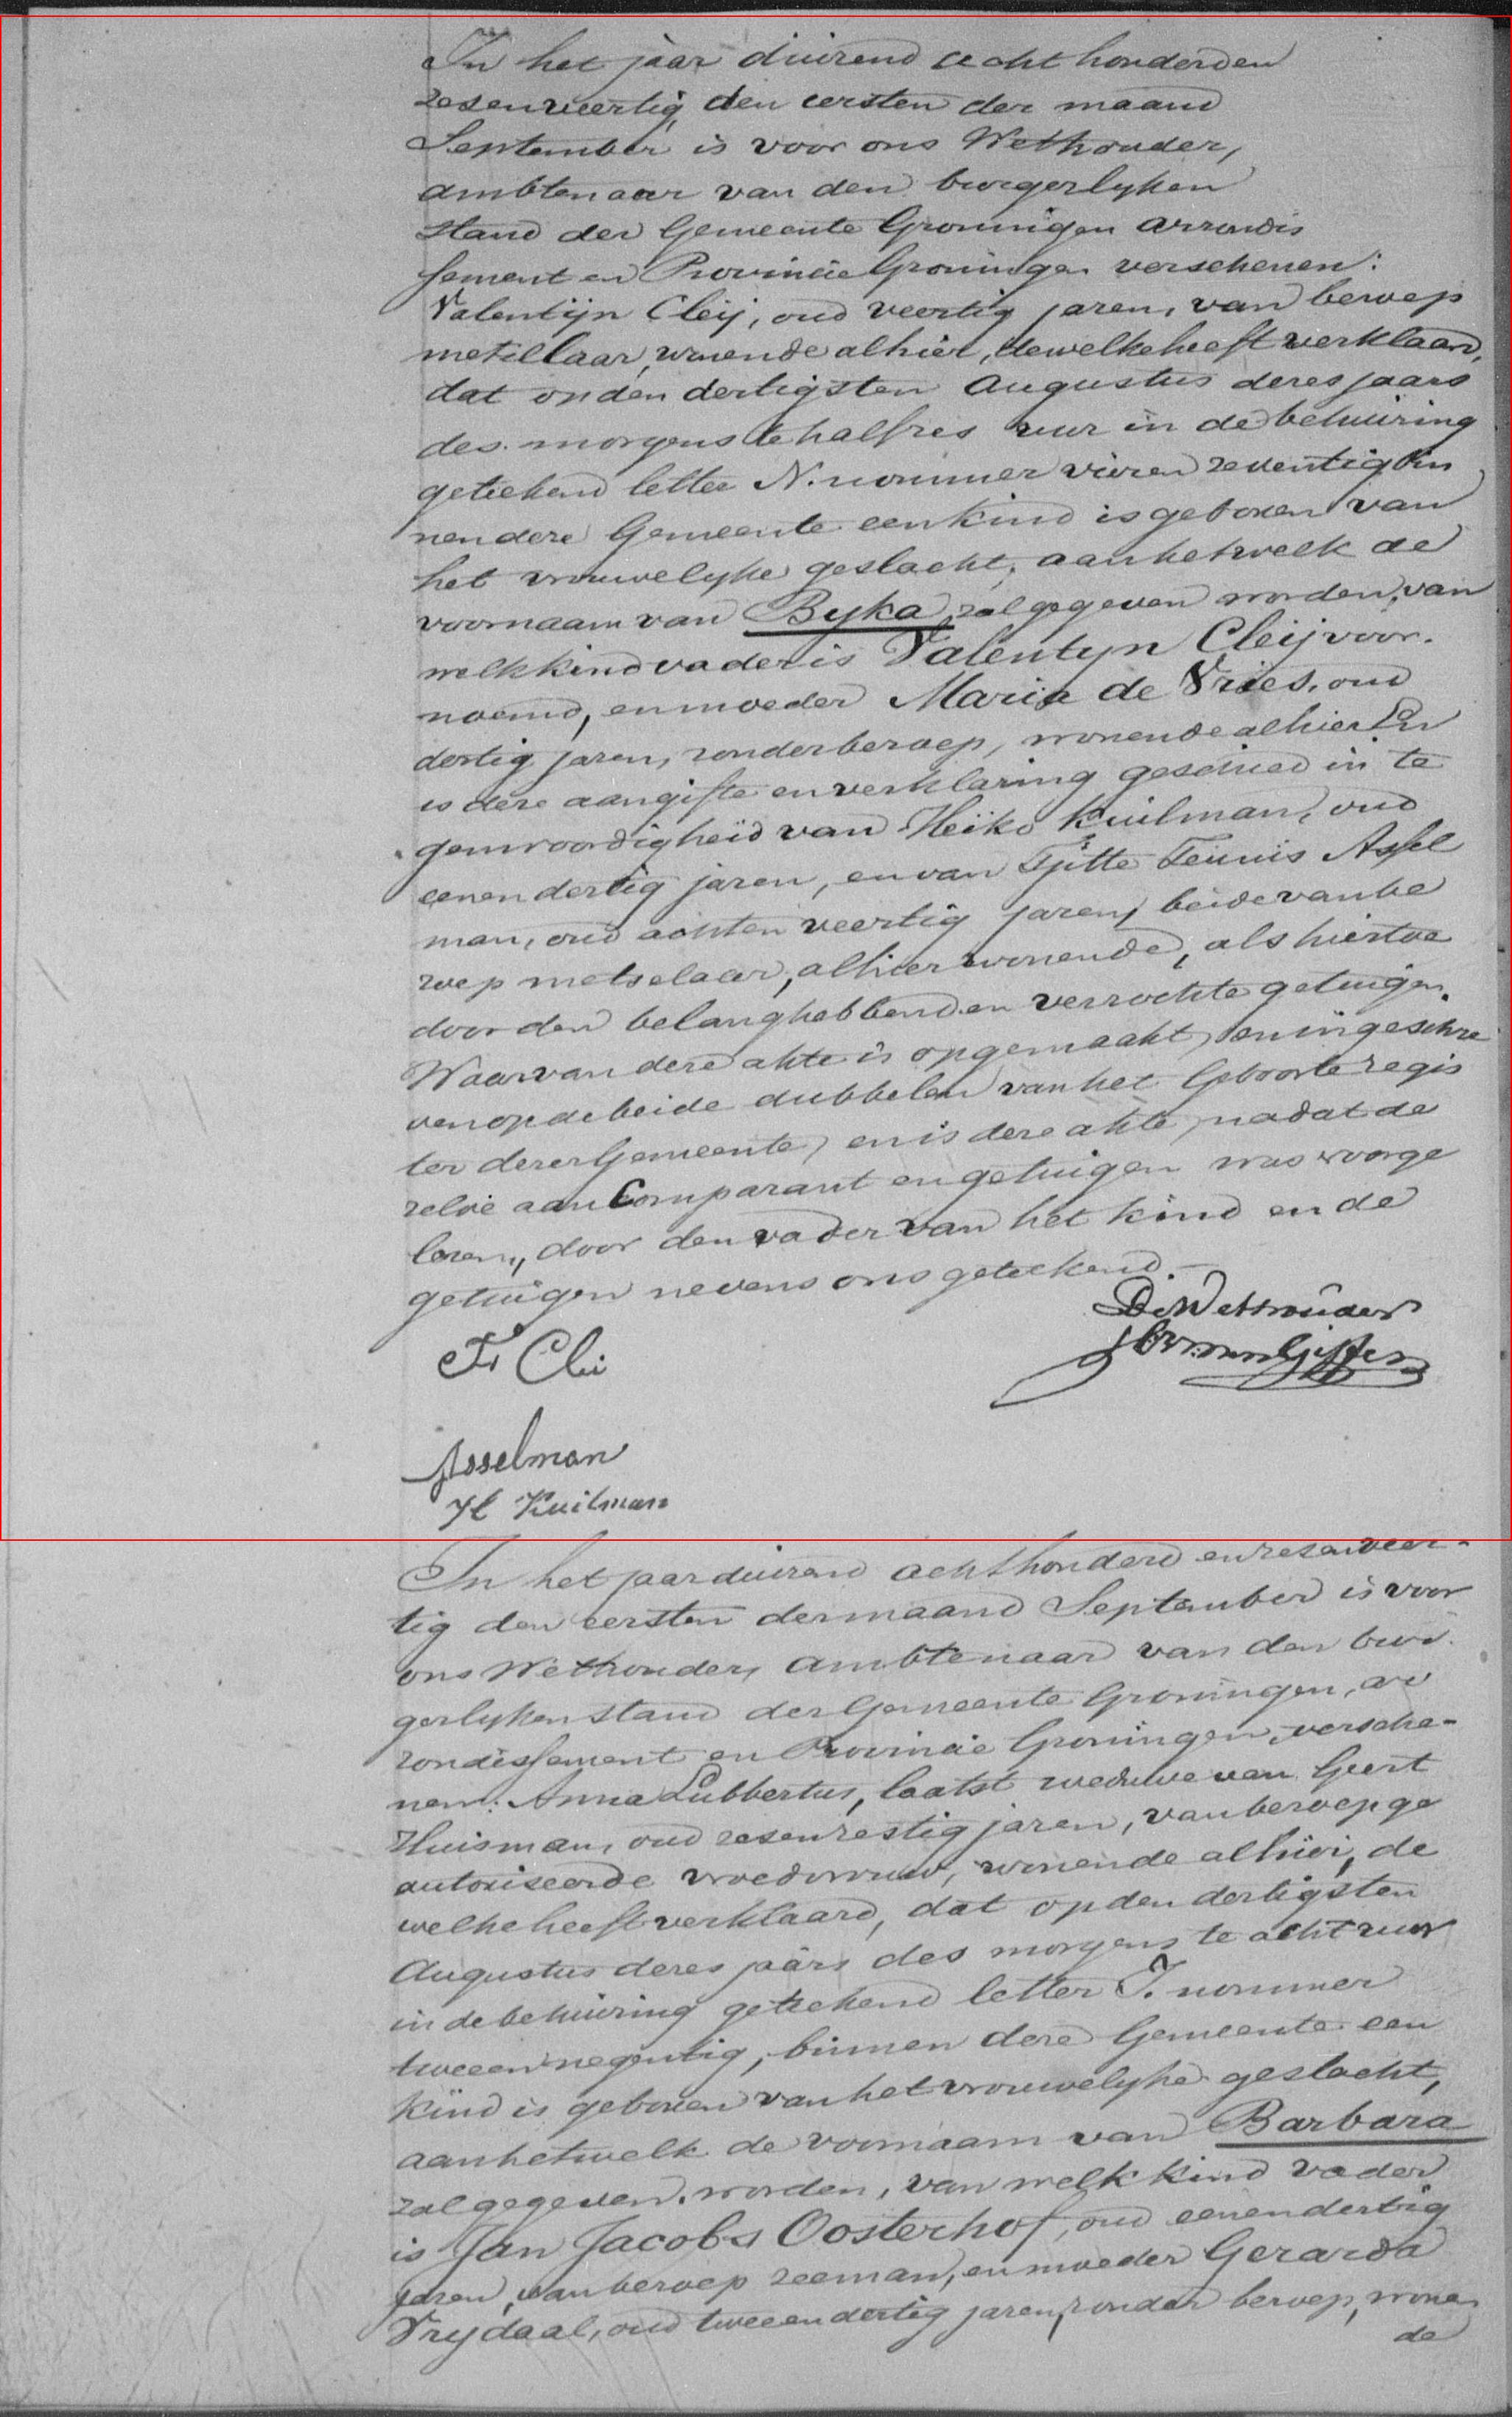 In het jaar duizend acht honderd en
zesenveertig, den eersten der maand
September is voor ons Wethouder,
ambtenaar van den burgerlyken
stand der Gemeente Groningen arrondis
sement en Provincie Groningen verschenen:
Valentijn Cleij, oud veertig jaren, van beroep
metselaar, wonende alhier, dewelke heeft verklaard,
dat op den dertigsten Augustus dezes jaars
des morgens te half zes uur in de behuizing
geteekend letter N. nommer vieren zeventig bin
nen deze Gemeente een kind is geboren van
het vrouwelyke geslacht, aan hetwelk de
voornaam van Byka zal gegeven worden, van
welk kind vader is Valentyn Cleij voor.
noemd, en moeder Maria de Vries, oud
dertig jaren, zonder beroep, wonende alhier En
is deze aangifte en verklaring geschied in te
genwoordigheid van Heiko Kuilman, oud
eenendertig jaren, en van Tjitte Teunis Assel
man, oud achten veertig jaren, beide van be
roep metselaar, alhier wonende, als hiertoe
door den belanghebbenden verzochte getuigen.
Waarvan deze akte is opgemaakt, en ingeschre
ven op de beide dubbelen van het Geboorte regis
ter dezer Gemeente, en is deze akte, nadat de
zelve aan Comparant en getuigen was voorge
lezen, door den vader van het kind en de
getuigen nevens ons geteekend.—
De Wethouder
F Cli
Asselman
H Kuilman
In het jaar duizend achthonderd en zesenveer-
tig den eersten der maand September is voor
ons Wethouder, ambtenaar van den bur
gerlyken stand der Gemeente Groningen, ar
rondissement en Provincie Groningen, versche-
nen: Anna Lubbertus, laatst weduwe van Geert
Huisman, oud zesenzestig jaren, van beroep ge
autoriseerde vroedvrouw, wonende alhier, de
welke heeft verklaard, dat op den dertigsten
Augustus dezes jaars des morgens te acht uur
in de behuizing geteekend letter I. nommer
tweeennegentig, binnen deze Gemeente een
kind is geboren van het vrouwelyke geslacht,
aan hetwelk de voornaam van Barbara
zal gegeven worden, van welk kind vader
is Jan Jacobs Oosterhof, oud eenendertig
jaren, van beroep zeeman, en moeder Gerarda
Vrydaal, oud tweeendertig jaren, zonder beroep, wonen
de